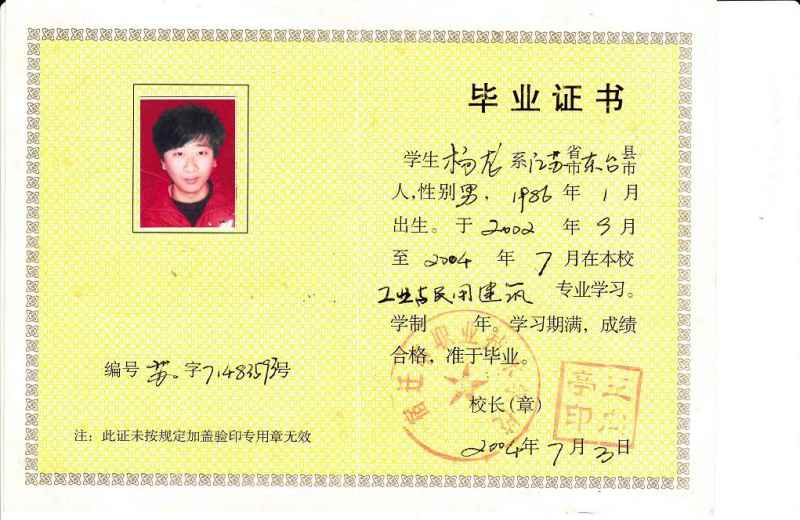 毕业证书
学生杨龙系江苏省市东台县市
人,性别男,1986年1月
出生。于2002年9月
至2004年7月在本校
工业与民用建筑专业学习。
学制 年。学习期满,成绩
合格,准于毕业。
编号苏字71483593号
校长(章)
注:此证未按规定加盖验印专用章无效
2004年7月3日